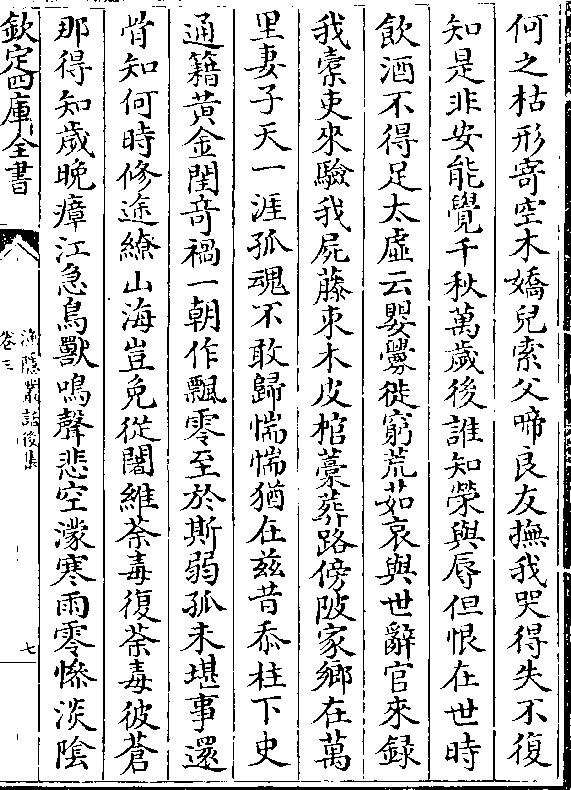 何之枯形寄空木嬌兒索父啼良友撫我哭得失不復
知是非安能覺千秋萬歲後誰知榮與辱但恨在世時
飲酒不得足太虛云嬰釁徙窮荒茹哀與世辭官來録
我槖吏來驗我屍藤束木皮棺藁葬路傍陂家鄉在萬
里妻子天一涯孤魂不敢歸惴惴猶在兹昔忝柱下史
通籍黄金閨竒禍一朝作飄零至於斯弱孤未堪事還
骨知何時修途繚山海豈免從闍維荼毒復荼毒彼蒼
那得知歲晚瘴江急鳥獸鳴聲悲空濛寒雨零慘淡陰
欽定四庫全書
漁隱叢話後集
卷三
七